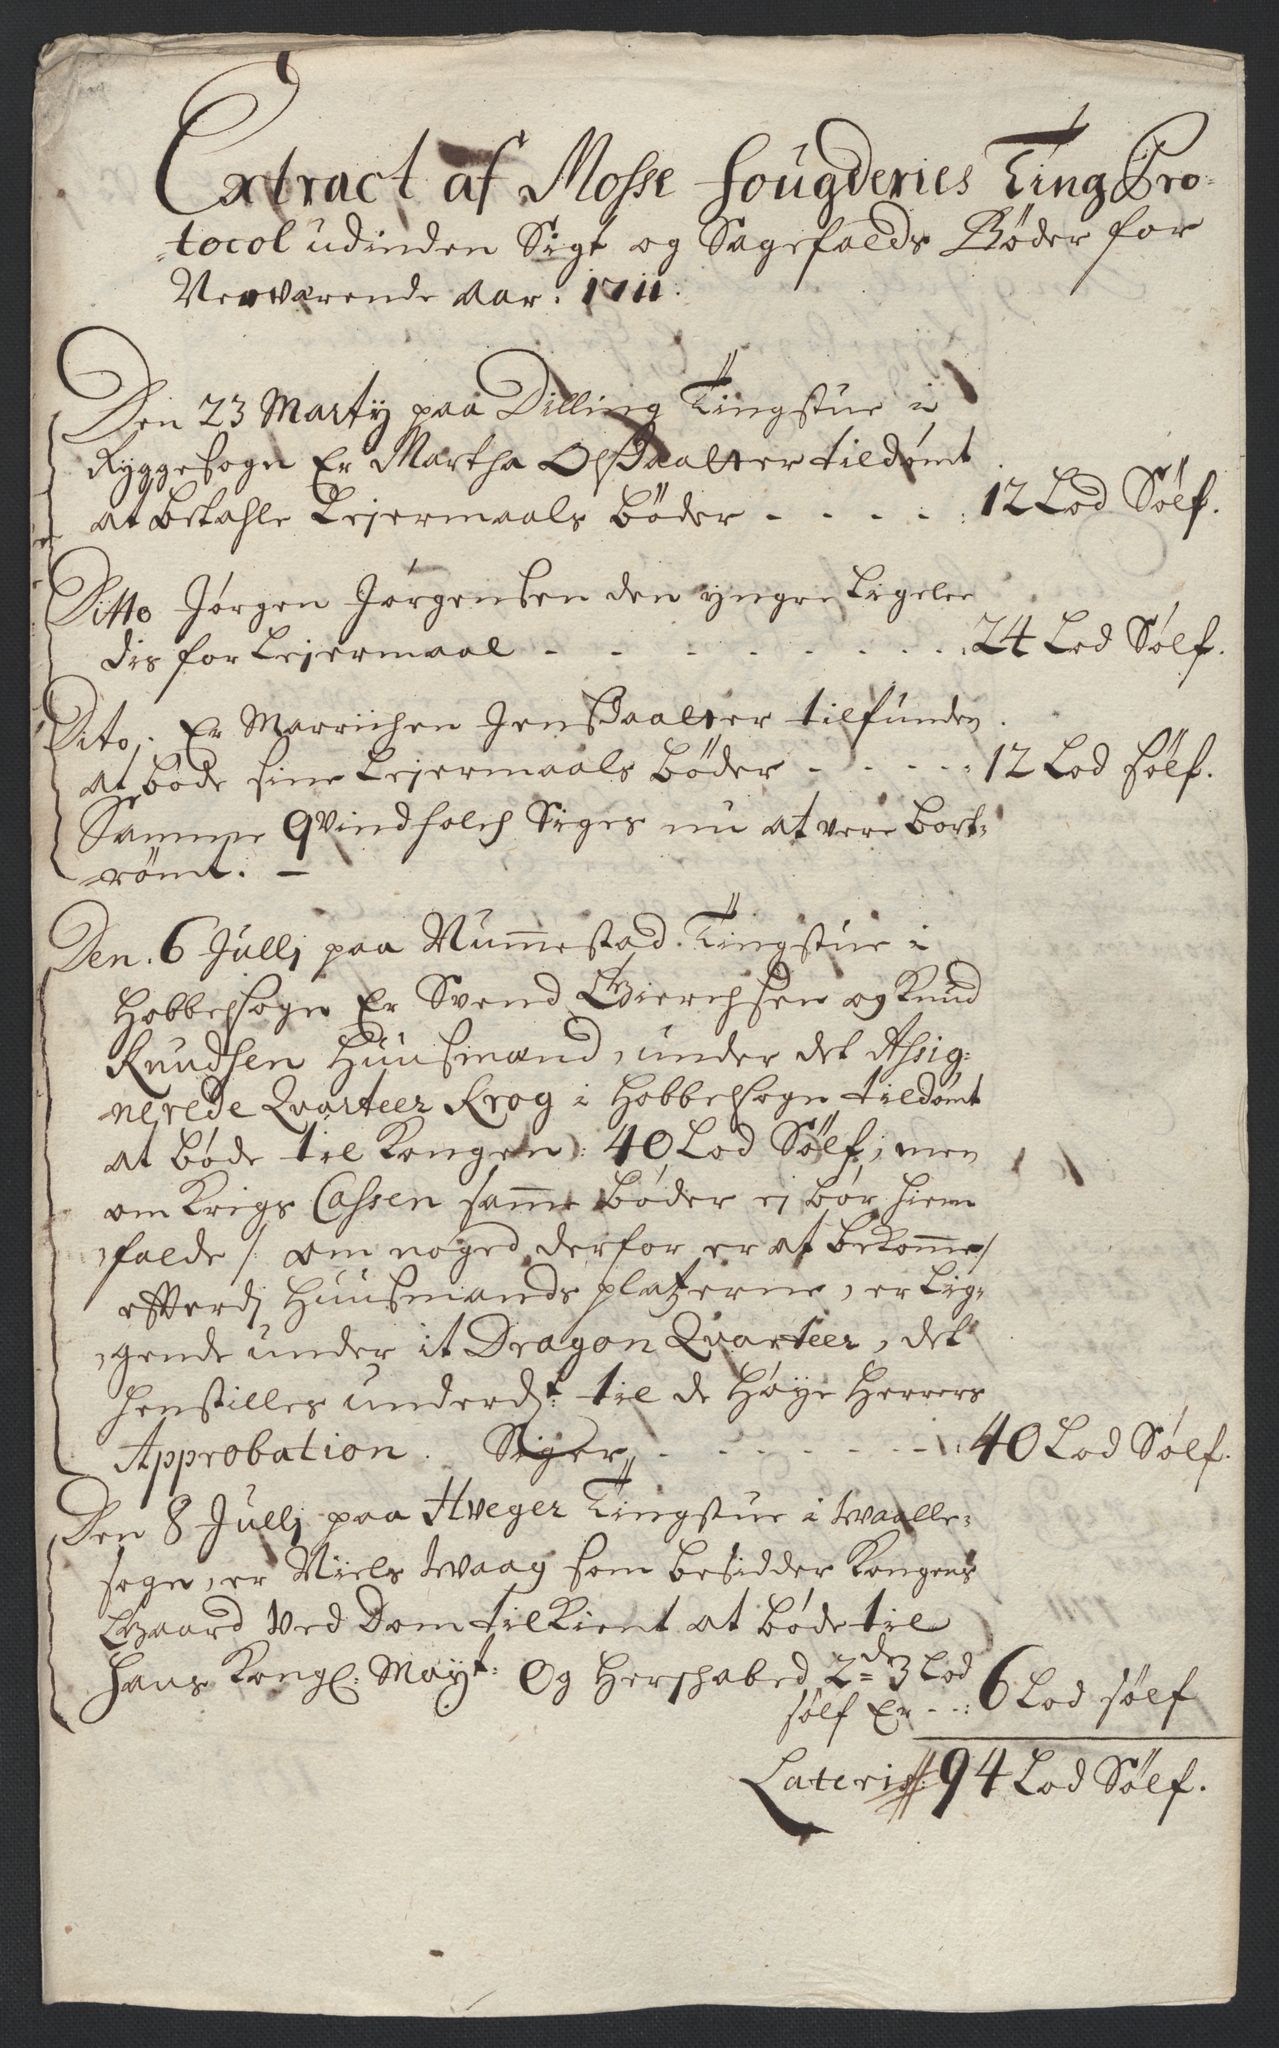 Extract af Mosse fougderies Ting Pro-
tocol udinden Sigt og Sagefalds Bøder for
Nerværende Aar. 1711.
Den 23 Marty paa Dilling Tingstue i
Ryggesogn Er Martha Olsdaatter tildømt
at betahle Lejermaals bøder - - - - : 12 Lod Sølf.
Ditto Jørgen Jørgensen den yngre Ligele
dis for Lejermaal - - - - - - - - 24 Lod Sølf.
Dito, Er Marrichen Jensdaatter tilfunden
at bøde sine Lejermaals bøder - - - - : 12 Lod sølf.
Samme Qvindfolch Siges nu at vere bort-
rømt. -
Den 6 Julij paa Nummestad Tingstue i
Hobbelsogn Er Svend Gierchsen og Knud
Knudsen Huusmænd, under det Assig-
nerede Qvarteer Krog i Hobbelsogn tildømt
at bøde til Kongen: 40 Lod Sølf, men
om Krigs Cassen samme bøder ej bør hiem
falde /: om noged derfor er at bekomme /
efterdj Huusmands platzerne, er Lig-
gende under it Dragon Qvarteer, det
henstilles underd:t til de Høye Herrers
Approbation. Siger - - - - - - : 40 Lod Sølf.
Den 8 Julij paa Hveger Tingstue i Waalle-
sogn, er Niels Waag som besidder Kongens
Gaard Ved Dom tilkient at bøde til
Hans Kongl: Mayt: Og Herschabed 2de 3 Lod
sølf Er - - : 6 Lod sølf
Lateris: 94 Lod Sølf.